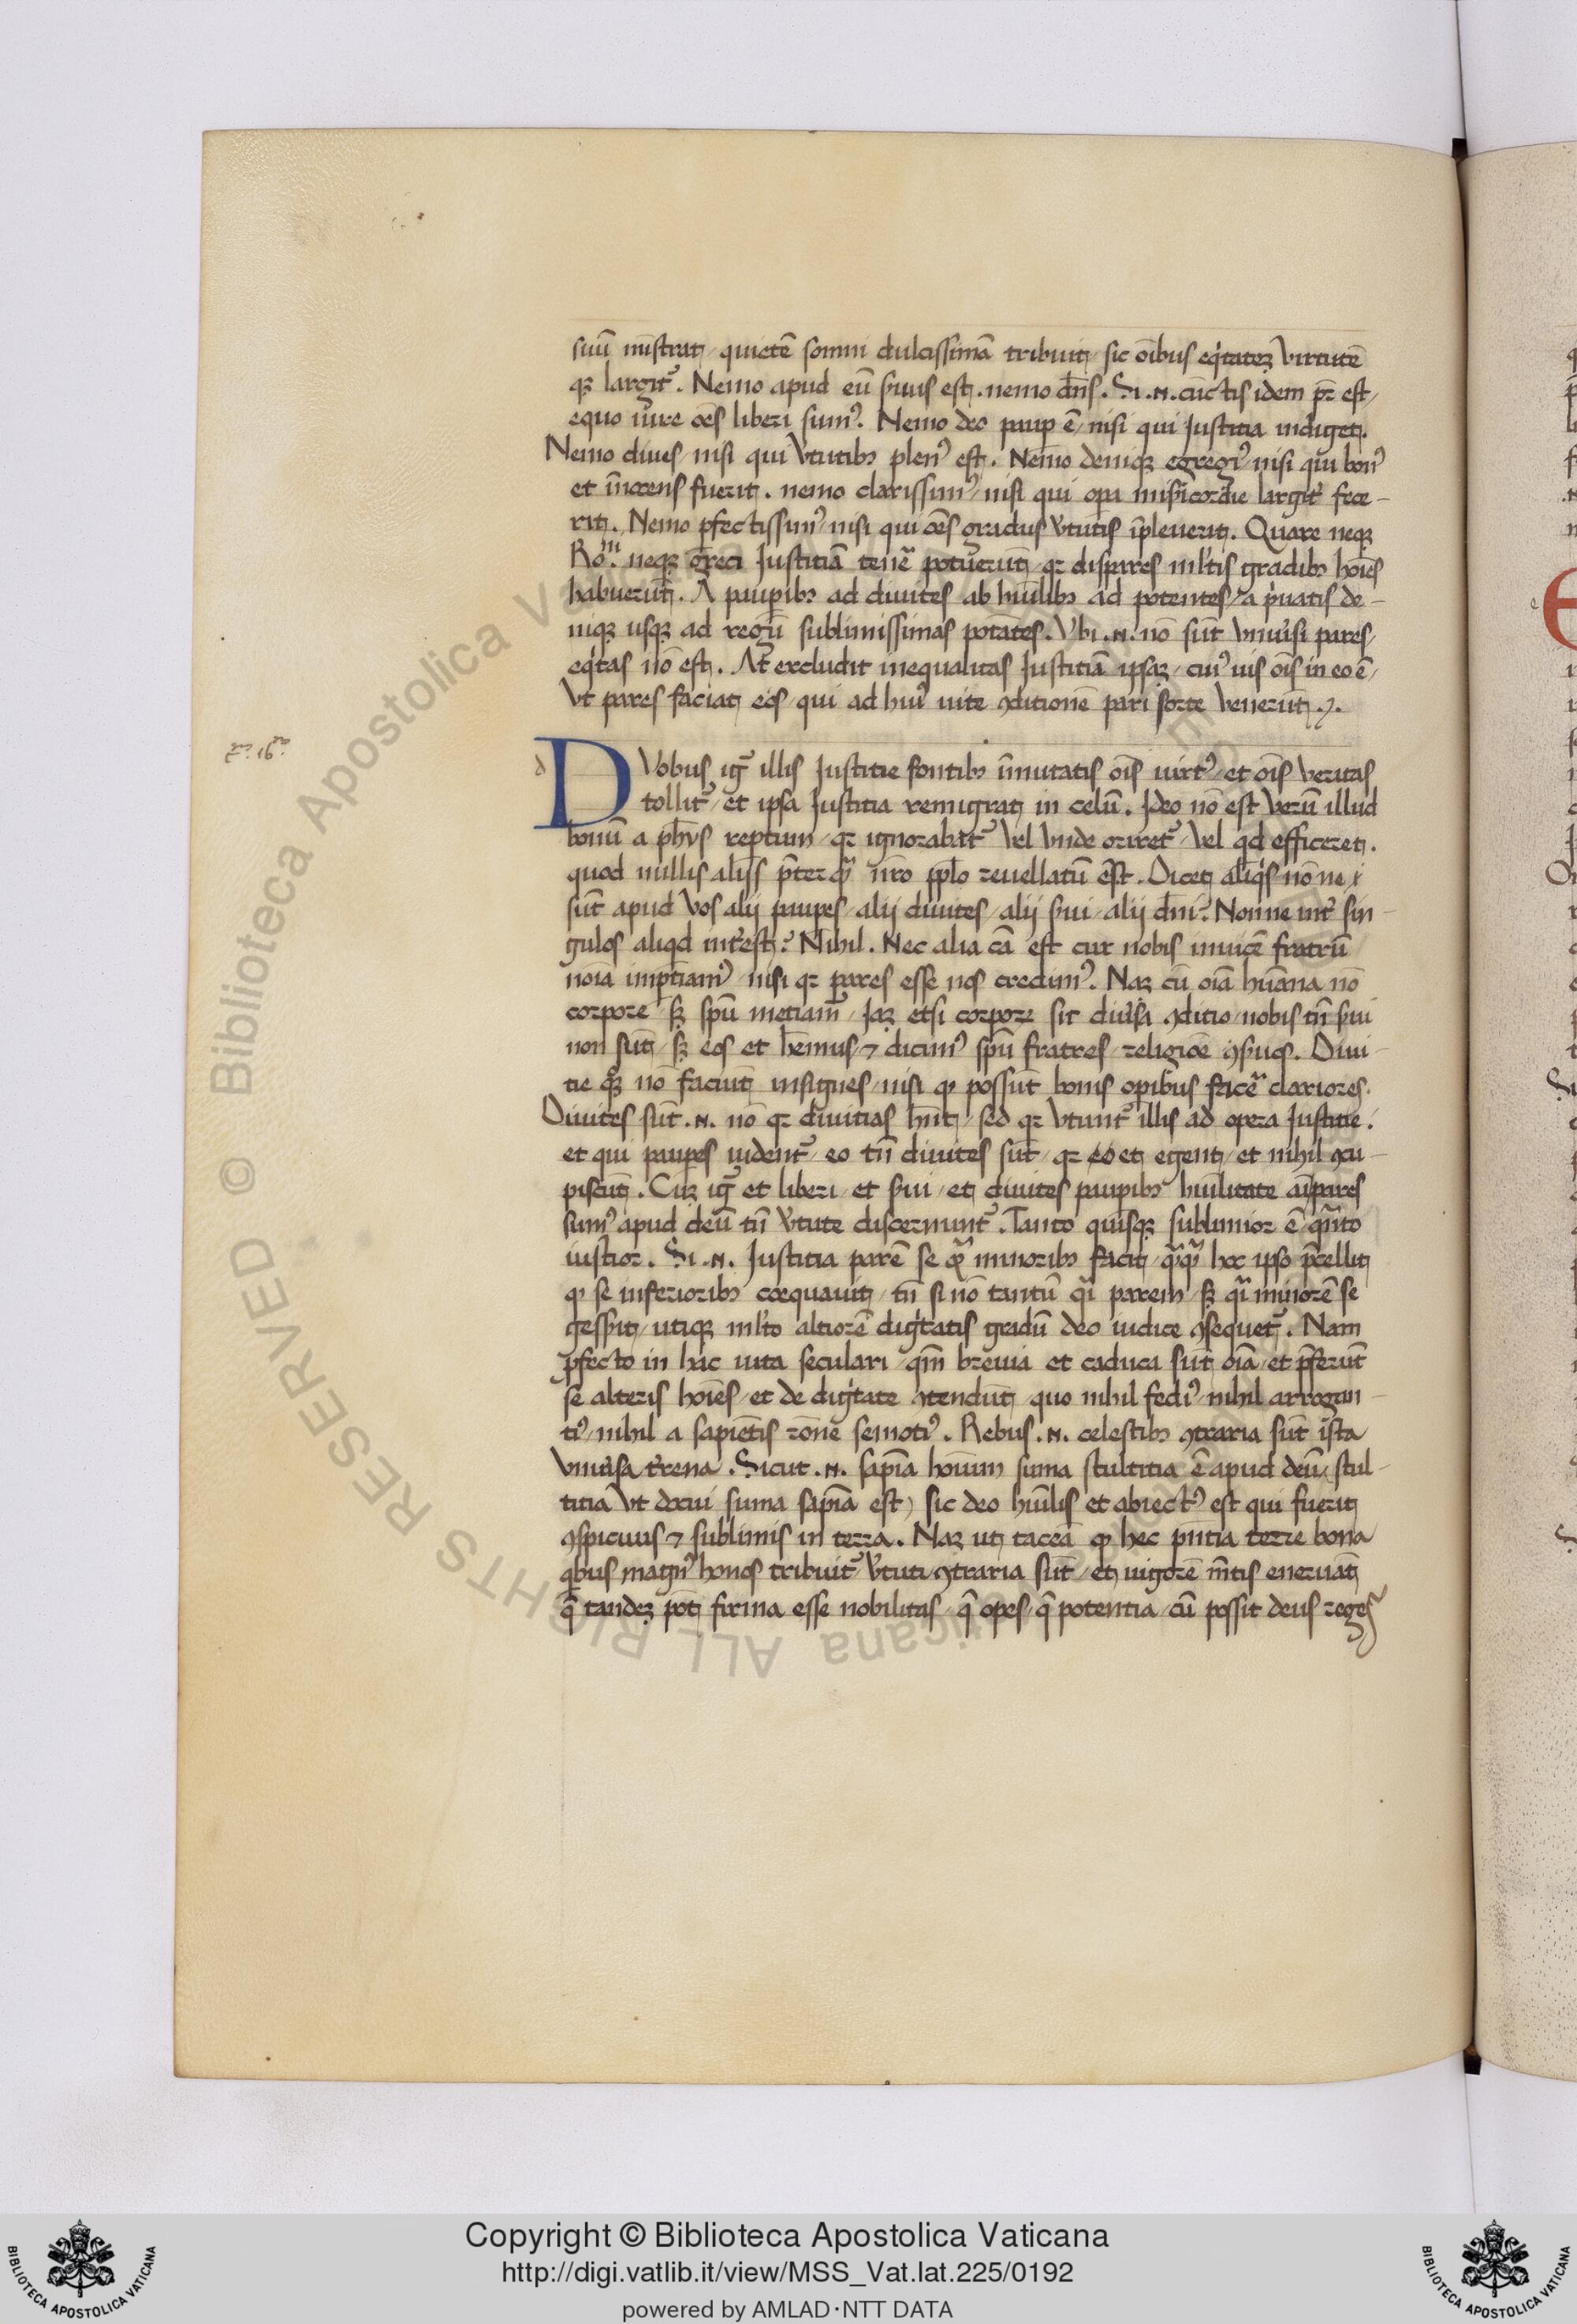 suū mīstrat / quietē somni dulcissimā tribuit / sic oībus eq̇tatez Virtutē
qz largit᷑. Nemo apud eū s̄uus est. nemo dn̄s. Si .n. cūctis idem pr̄ est /
equo iure oēs liberi sumꝰ. Nemo deo paup ē / nisi qui Justitia indiget.
Nemo diues / nisi qui Vtutibꝫ plenꝰ est. Nemo deniqz egregiꝰ / nisi qui bonꝰ
et īnocens fuerit. nemo clarissimꝰ / nisi qui opa mis̄icordie largit᷑ fece-
rit. Nemo pfectissimꝰ / nisi qui oēs gradus v̄tutis īpleuerit. Quare neqz
Roͫⁱ. neqz greci Justitiā tene᷑ potuerūt / qz dispares ml̄tis gradibꝫ hoīes
habuerūt. A paupibꝫ ad diuites ab hūilibꝫ ad potentes / a p̄uatis de-
niqz usqz ad regū sublimissimas pot̄ates. Vbi .n. nō sūt Vniu̓si pares /
eq̇tas nō est. At excludit inequalitas Justitiā ipsaz / cuiꝰ uis oīs in eo ē /
Vt pares faciat eos / qui ad huiꝰ uite ꝯditionē pari sorte Venerūt.
d
DVobus ig᷑ illis Justitie fontibꝫ īmutatis oīs uirtꝰ / et oīs Veritas
tollit᷑ / et ipsa Justitia remigrat in celū. Ideo nō est Verū illud
bonū a ph̄ys reptum / qz ignorabāt᷑ Vel Vnde oriret᷑ / Vel qd efficeret.
quod nullis aliis p̄terqᷓ nr̄o pplo reuellatū est. Dicet aliq̇s nō ne
sūt apud Vos alij paupes / alij diuites / alij s̄ui / alij dn̄i? Nonne int̓ sin-
gulos aliqd int̓est? Nihil. Nec alia cā est cur nobis inuicē fratrū
noīa imptiamꝰ / nisi qz pares esse nos credimꝰ. Naz cū oīa hūana nō
corpore / sz spū metiam᷑ / Jaz etsi corpore sit diu̓sa ꝯditio / nobis tn̄ s̄ui
non sūt / sz eos et hēmus / ⁊ dicimꝰ spū fratres / religiōe ꝯs̄uos. Diui-
tie qͦqz nō faciūt insignes / nisi ꝙ possūt bonis opibus face᷑ clariores.
Diuites sūt .n. nō qz diuitias hn̄t / sed qz Vtunt᷑ illis ad opera Justitie.
et qui paupes uident᷑ / eo tn̄ diuites sūt / qz et egent / et nihil ꝯcu-
piscūt. Cuz ig᷑ et liberi / et s̄ui / et diuites paupibꝫ hūilitate aī pares
sumꝰ apud deū tn̄ v̄tute discernunt᷑. Tanto quisqz sublimior ē / qn̄to
iustior. Si .n. Justitia parē se qᷓ minoribꝫ facit / qᷓqᷓ hoc ipso p̄cellit
ꝙ se inferioribꝫ coequauit / tn̄ si nō tantū qͣi parem / sz qͣi minorē se
gess̄it / utiqz ml̄to altiorē dig̓tatis gradū deo iudice ꝯsequet᷑. Nam
pfecto in hac uita seculari / qm̄ breuia et caduca sūt oīa / et p̄ferūt
se alteris hoīes / et de dig̓tate ꝯtendūt / quo nihil fediꝰ / nihil arrogan-
tiꝰ / nihil a sapiētis rōne semotiꝰ. Rebus .n. celestibꝫ ꝯtraria sūt ista
Vniu̓sa t̓rena. Sicut .n. sapīa hoīum suma stultitia ē apud deū / stul-
titia Vt docui suma sapīa est) sic deo hūilis et abiectꝰ est qui fuerit
ꝯspicuus ⁊ sublimis in terra. Naz ut taceā ꝙ hec pn̄tia terre bona
q̇bus magnꝰ honos tribuit᷑ v̄tuti ꝯtraria sūt / et uigorē m̄tis eneruāt
q̄ tandez pōt firma esse nobilitas / q̄ opes / q̄ potentia / cū possit deus reges
© Biblioteca Apostolica Vaticana ALL RIGHTS RESERVED
Copyright © Biblioteca Apostolica Vaticana
http://digi.vatlib.it/view/MSS_Vat.lat.225/0192
powered by AMLAD·NTT DATA
BIBLIOTECA APOSTOLICA VATICANA
BIBLIOTECA APOSTOLICA VATICANA